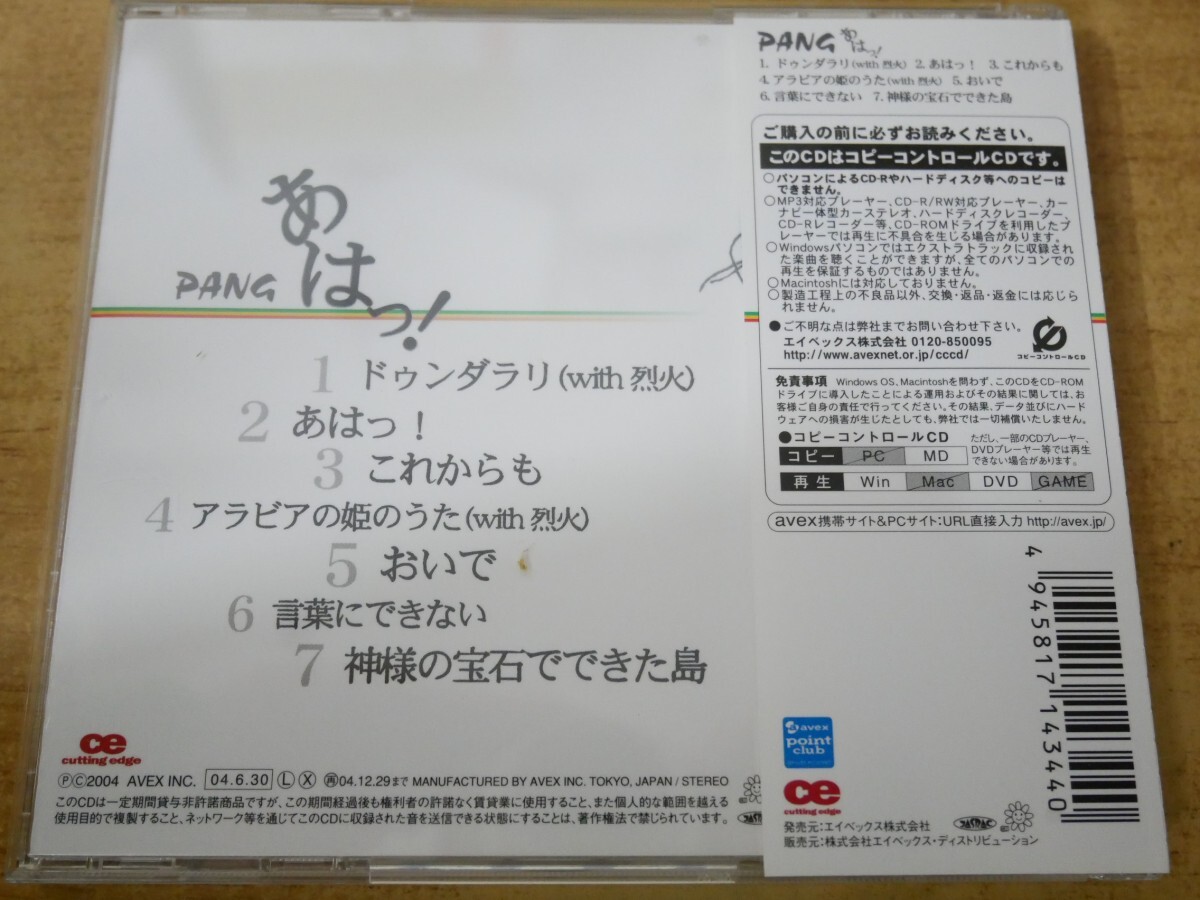 PANG
あはっ!
1 ドゥンダラリ(with 烈火)
2 あはっ!
3 これからも
4 アラビアの姫のうた(with 烈火)
5 おいで
6 言葉にできない
7 神様の宝石でできた島
ce
cutting edge
ⓅⒸ2004 AVEX INC. 04.6.30 Ⓛ Ⓧ ㋐04.12.29まで MANUFACTURED BY AVEX INC. TOKYO, JAPAN / STEREO
このCDは一定期間貸与非許諾商品ですが、この期間経過後も権利者の許諾なく賃貸業に使用すること、また個人的な範囲を越える
使用目的で複製すること、ネットワーク等を通じてこのCDに収録された音を送信できる状態にすることは、著作権法で禁じられています。
PANG あはっ!
1. ドゥンダラリ(with 烈火) 2. あはっ! 3. これからも
4. アラビアの姫のうた(with 烈火) 5. おいで
6. 言葉にできない 7. 神様の宝石でできた島
ご購入の前に必ずお読みください。
このCDはコピーコントロールCDです。
○パソコンによるCD-Rやハードディスク等へのコピーは
できません。
○MP3対応プレーヤー、CD-R/RW対応プレーヤー、カー
ナビ一体型カーステレオ、ハードディスクレコーダー、
CD-Rレコーダー等、CD-ROMドライブを利用したプ
レーヤーでは再生に不具合を生じる場合があります。
○Windowsパソコンではエクストラトラックに収録され
た楽曲を聴くことができますが、全てのパソコンでの
再生を保証するものではありません。
○Macintoshには対応しておりません。
○製造工程上の不良品以外、交換・返品・返金には応じら
れません。
●ご不明な点は弊社までお問い合わせ下さい。
エイベックス株式会社 0120-850095
http://www.avexnet.or.jp/cccd/
コピーコントロールCD
免責事項 Windows OS、Macintoshを問わず、このCDをCD-ROM
ドライブに導入したことによる運用およびその結果に関しては、お
客様ご自身の責任で行ってください。その結果、データ並びにハード
ウェアへの損害が生じたとしても、弊社では一切補償いたしません。
●コピーコントロールCD
ただし、一部のCDプレーヤー、
DVDプレーヤー等では再生
できない場合があります。
コピー PC MD
再生 Win Mac DVD GAME
avex携帯サイト&PCサイト:URL直接入力 http://avex.jp/
4 945817 143440
avex
point
club
ce
cutting edge
JASRAC
発売元:エイベックス株式会社
販売元:株式会社エイベックス・ディストリビューション